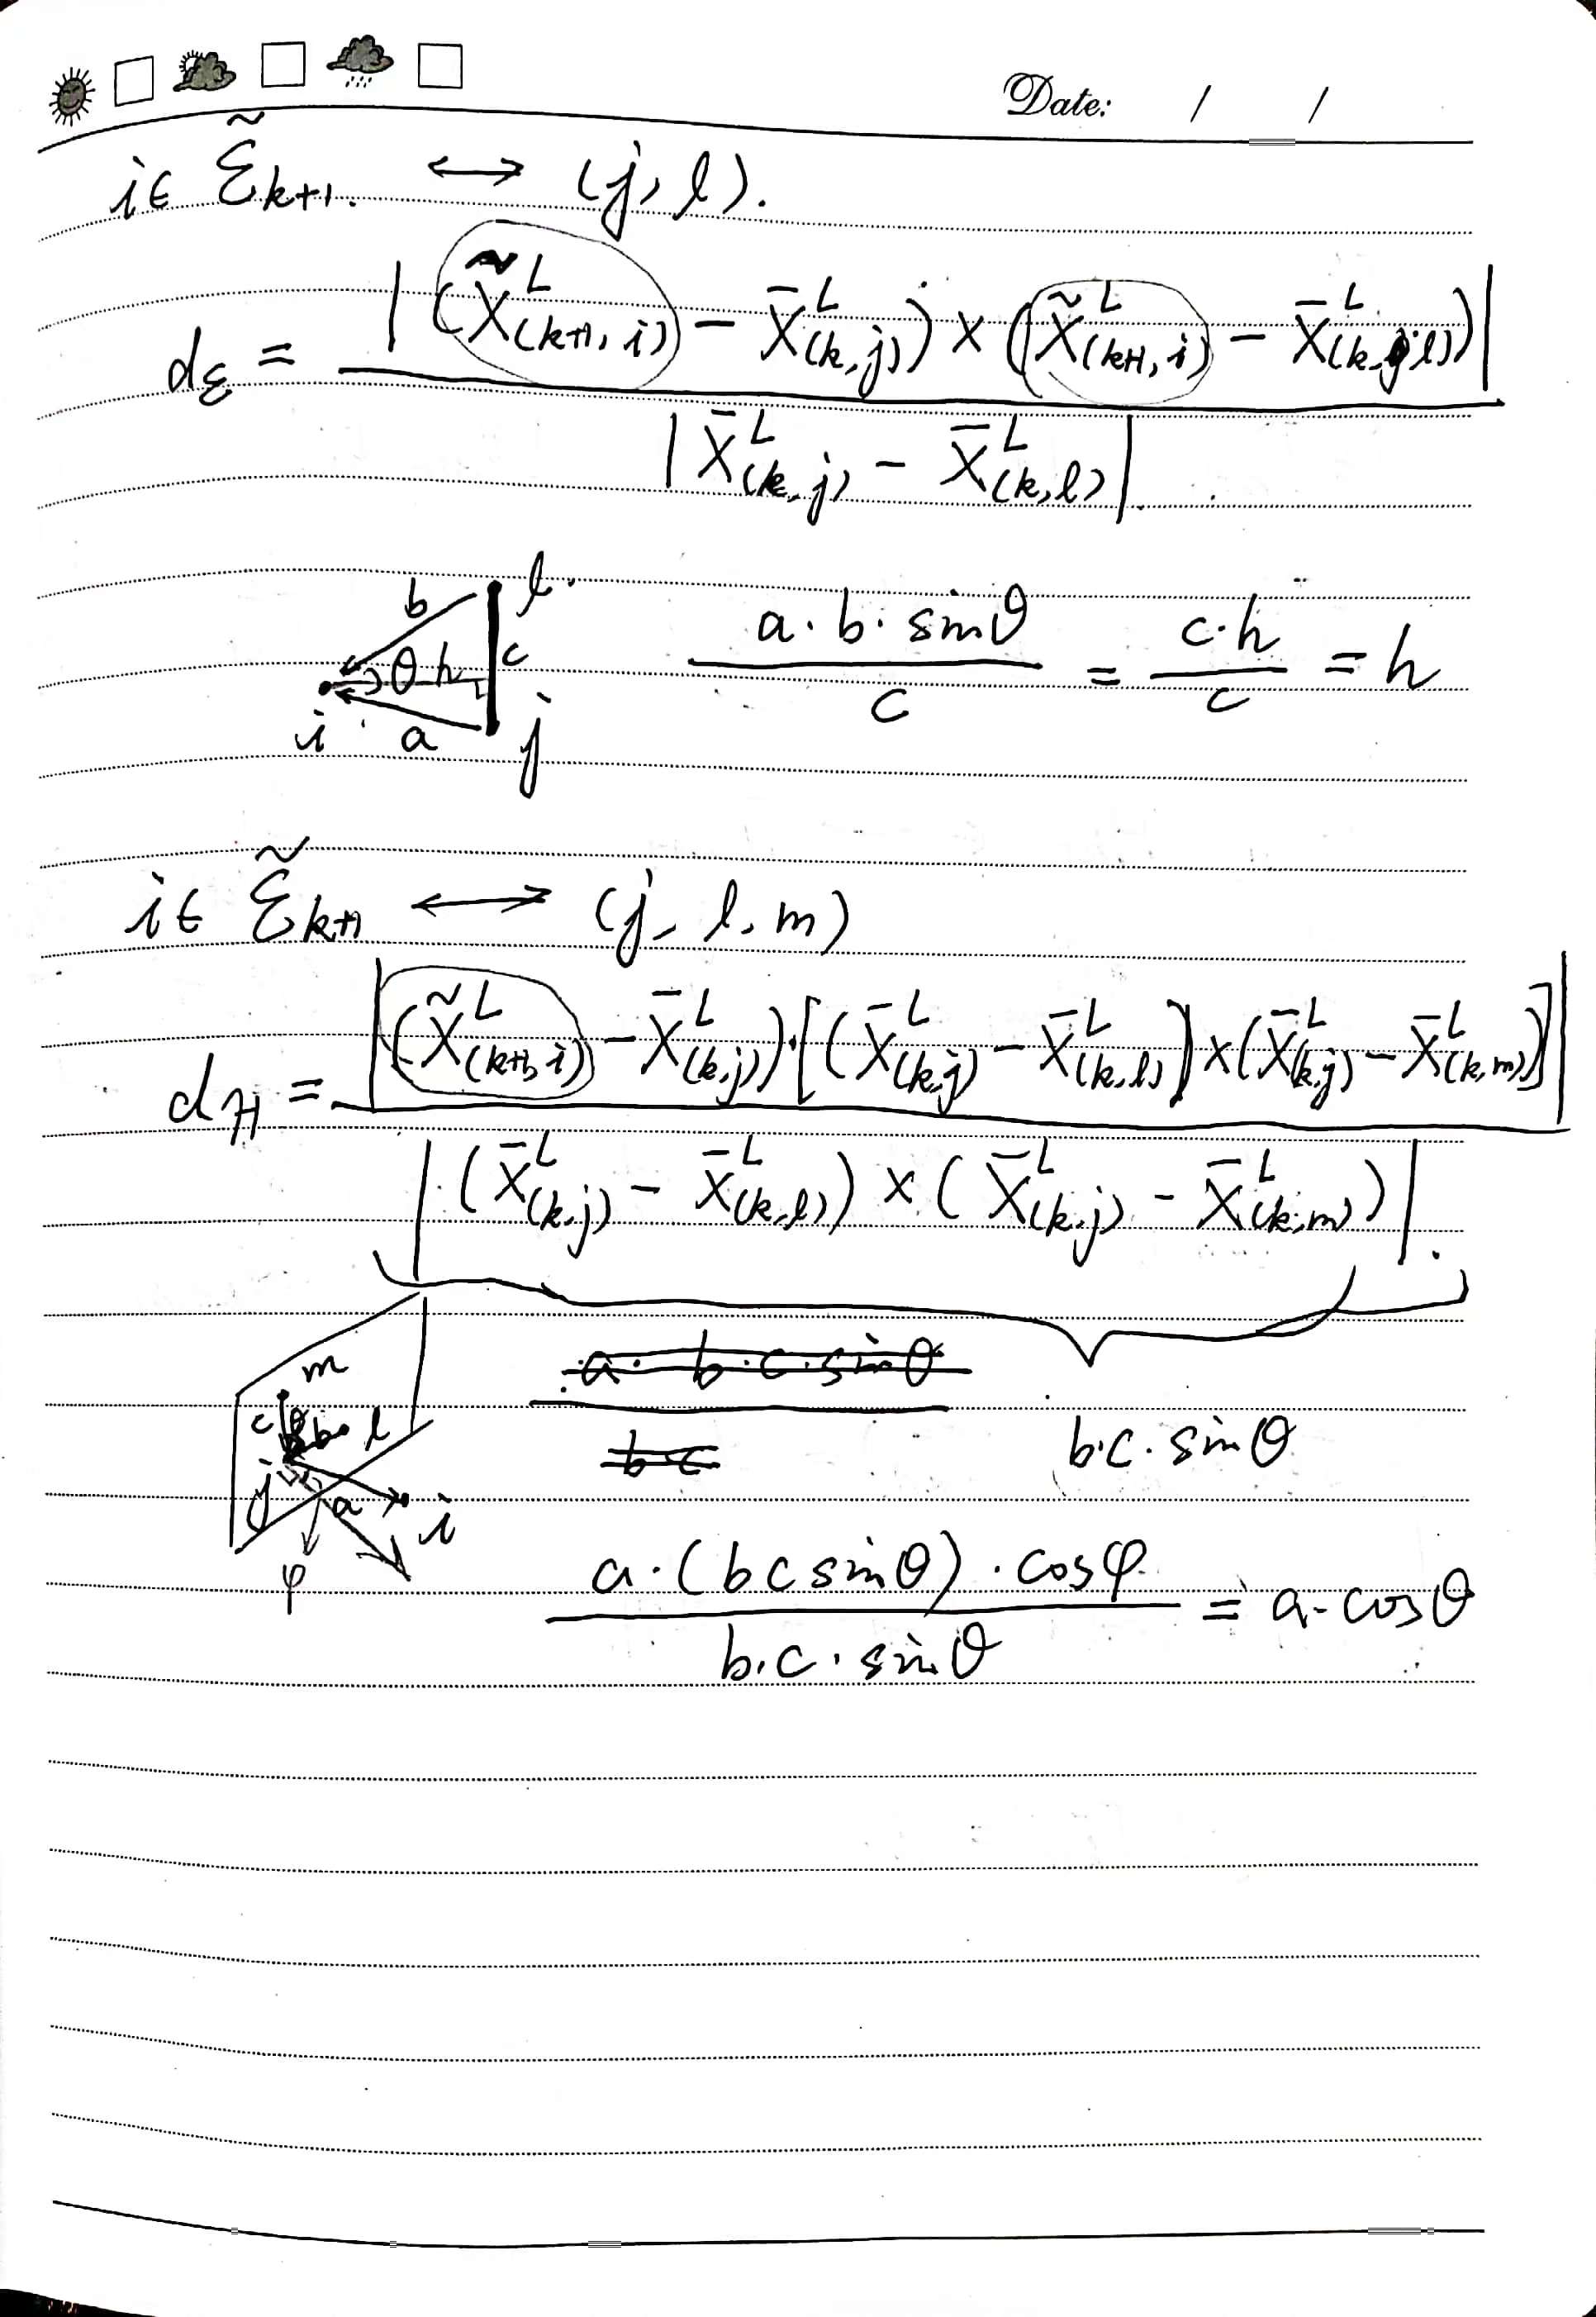 Date: / /
i ∈ ℰ̃ₖ₊₁. ⟷ (j, l).
d_ℰ = |(X̃ᴸ_(k+1, i) − X̄ᴸ_(k, j)) × (X̃ᴸ_(k+1, i) − X̄ᴸ_(k, l))| / |X̄ᴸ_(k, j) − X̄ᴸ_(k, l)|.
b l
θ h c
i a j
a·b·sinθ / c = c·h / c = h
i ∈ ℰ̃ₖ₊₁ ⟷ (j, l, m)
d_H = |(X̃ᴸ_(k+1, i) − X̄ᴸ_(k, j))·[(X̄ᴸ_(k, j) − X̄ᴸ_(k, l)) × (X̄ᴸ_(k, j) − X̄ᴸ_(k, m))]| / |(X̄ᴸ_(k, j) − X̄ᴸ_(k, l)) × (X̄ᴸ_(k, j) − X̄ᴸ_(k, m))|.
m
c θ b l
j a i
φ
a·b·c·sinθ / bc
b·c·sinθ
a·(bc sinθ)·cosφ / b·c·sinθ = a·cosθ